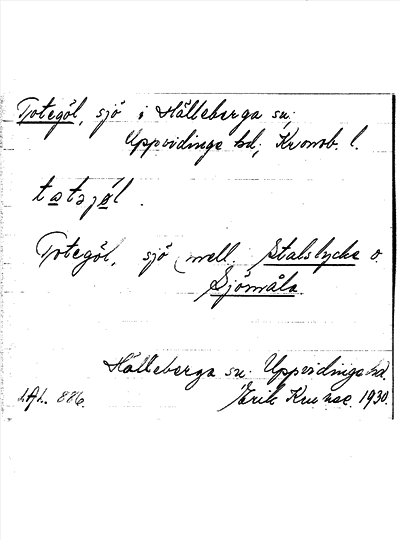 Totegöl, sjö i Hälleberga sn;
Uppvidinge hd; Kronob. l.
tatəjøl.
Totegöl, sjö mell. Stalslycke o.
Sjömåla.
Hälleberga sn. Uppvidinge hd.
Erik 1930.
886.